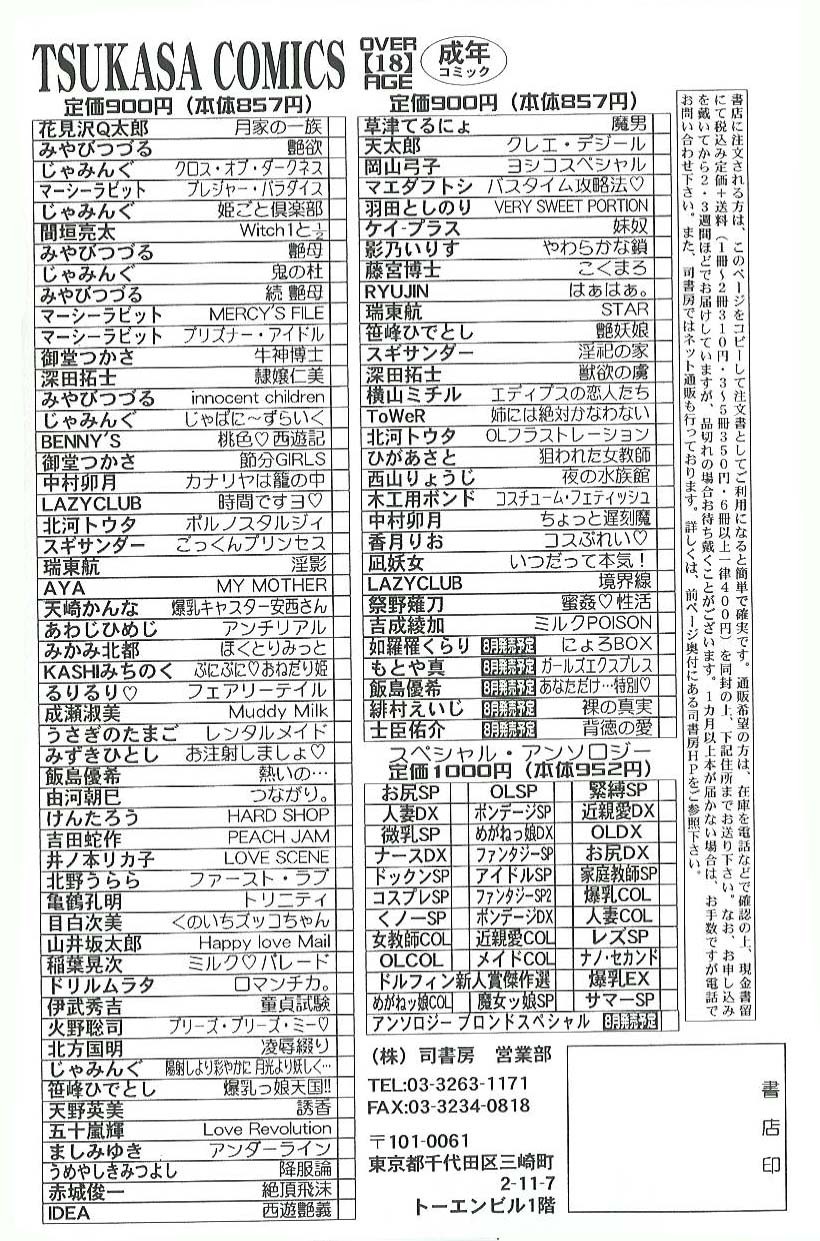 TSUKASA COMICS
OVER
【18】
AGE
成年
コミック
定価900円（本体857円）
花見沢Q太郎 月家の一族
みやびつづる 艶欲
じゃみんぐ クロス・オブ・ダークネス
マーシーラビット プレジャー・パラダイス
じゃみんぐ 姫ごと倶楽部
間垣亮太 Witch1と½
みやびつづる 艶母
じゃみんぐ 鬼の杜
みやびつづる 続 艶母
マーシーラビット MERCY'S FILE
マーシーラビット プリズナー・アイドル
御堂つかさ 牛神博士
深田拓士 隷嬢仁美
みやびつづる innocent children
じゃみんぐ じゃばに〜ずらいく
BENNY'S 桃色♡西遊記
御堂つかさ 節分GIRLS
中村卯月 カナリヤは籠の中
LAZYCLUB 時間ですヨ♡
北河トウタ ポルノスタルジィ
スギサンダー ごっくんプリンセス
瑞東航 淫影
AYA MY MOTHER
天崎かんな 爆乳キャスター安西さん
あわじひめじ アンチリアル
みかみ北都 ほくとりみっと
KASHIみちのく ぷにぷに♡おねだり姫
るりるり♡ フェアリーテイル
成瀬淑美 Muddy Milk
うさぎのたまご レンタルメイド
みずきひとし お注射しましょ♡
飯島優希 熱いの…
由河朝巳 つながり。
けんたろう HARD SHOP
吉田蛇作 PEACH JAM
井ノ本リカ子 LOVE SCENE
北野うらら ファースト・ラブ
亀鶴孔明 トリニティ
目白次美 くのいちズッコちゃん
山井坂太郎 Happy love Mail
稲葉晃次 ミルク♡パレード
ドリルムラタ ロマンチカ。
伊武秀吉 童貞試験
火野聡司 プリーズ・プリーズ・ミー♡
北方国明 凌辱綴り
じゃみんぐ 陽射しより彩やかに 月光より妖しく…
笹峰ひでとし 爆乳っ娘天国!!
天野英美 誘香
五十嵐輝 Love Revolution
ましみゆき アンダーライン
うめやしきみつよし 降服論
赤城俊一 絶頂飛沫
IDEA 西遊艶義
定価900円（本体857円）
草津てるにょ 魔男
天太郎 クレエ・デジール
岡山弓子 ヨシコスペシャル
マエダフトシ バスタイム攻略法♡
羽田としのり VERY SWEET PORTION
ケイ-プラス 妹奴
影乃いりす やわらかな鎖
藤宮博士 こくまろ
RYUJIN はぁはぁ。
瑞東航 STAR
笹峰ひでとし 艶妖娘
スギサンダー 淫祀の家
深田拓士 獣欲の虜
横山ミチル エディプスの恋人たち
ToWeR 姉には絶対かなわない
北河トウタ OLフラストレーション
ひがあさと 狙われた女教師
西山りょうじ 夜の水族館
木工用ボンド コスチューム・フェティッシュ
中村卯月 ちょっと遅刻魔
香月りお コスぷれい♡
凪妖女 いつだって本気！
LAZYCLUB 境界線
祭野薙刀 蜜姦♡性活
吉成綾加 ミルクPOISON
如羅罹くらり 8月発売予定 にょろBOX
もとや真 8月発売予定 ガールズエクスプレス
飯島優希 8月発売予定 あなただけ…特別♡
緋村えいじ 8月発売予定 裸の真実
士臣佑介 8月発売予定 背徳の愛
スペシャル・アンソロジー
定価1000円（本体952円）
お尻SP OLSP 緊縛SP
人妻DX ボンデージSP 近親愛DX
微乳SP めがねっ娘DX OLDX
ナースDX ファンタジーSP お尻DX
ドックンSP アイドルSP 家庭教師SP
コスプレSP ファンタジーSP2 爆乳COL
くノーSP ボンデージDX 人妻COL
女教師COL 近親愛COL レズSP
OLCOL メイドCOL ナノ・セカンド
ドルフィン新人賞傑作選 爆乳EX
めがねッ娘COL 魔女ッ娘SP サマーSP
アンソロジー ブロンドスペシャル 8月発売予定
書店に注文される方は、このページをコピーして注文書としてご利用になると簡単で確実です。通販希望の方は、在庫を電話などで確認の上、現金書留
にて税込み定価＋送料（1冊〜2冊310円・3〜5冊350円・6冊以上一律400円）を同封の上、下記住所までお送り下さい。なお、お申し込み
を戴いてから2・3週間ほどでお届けしていますが、品切れの場合お待ち戴くことがございます。1カ月以上本が届かない場合は、お手数ですが電話で
お問い合わせ下さい。また、司書房ではネット通販も行っております。詳しくは、前ページ奥付にある司書房HPをご参照下さい。
（株）司書房 営業部
TEL:03-3263-1171
FAX:03-3234-0818
〒101-0061
東京都千代田区三崎町
2-11-7
トーエンビル1階
書店印